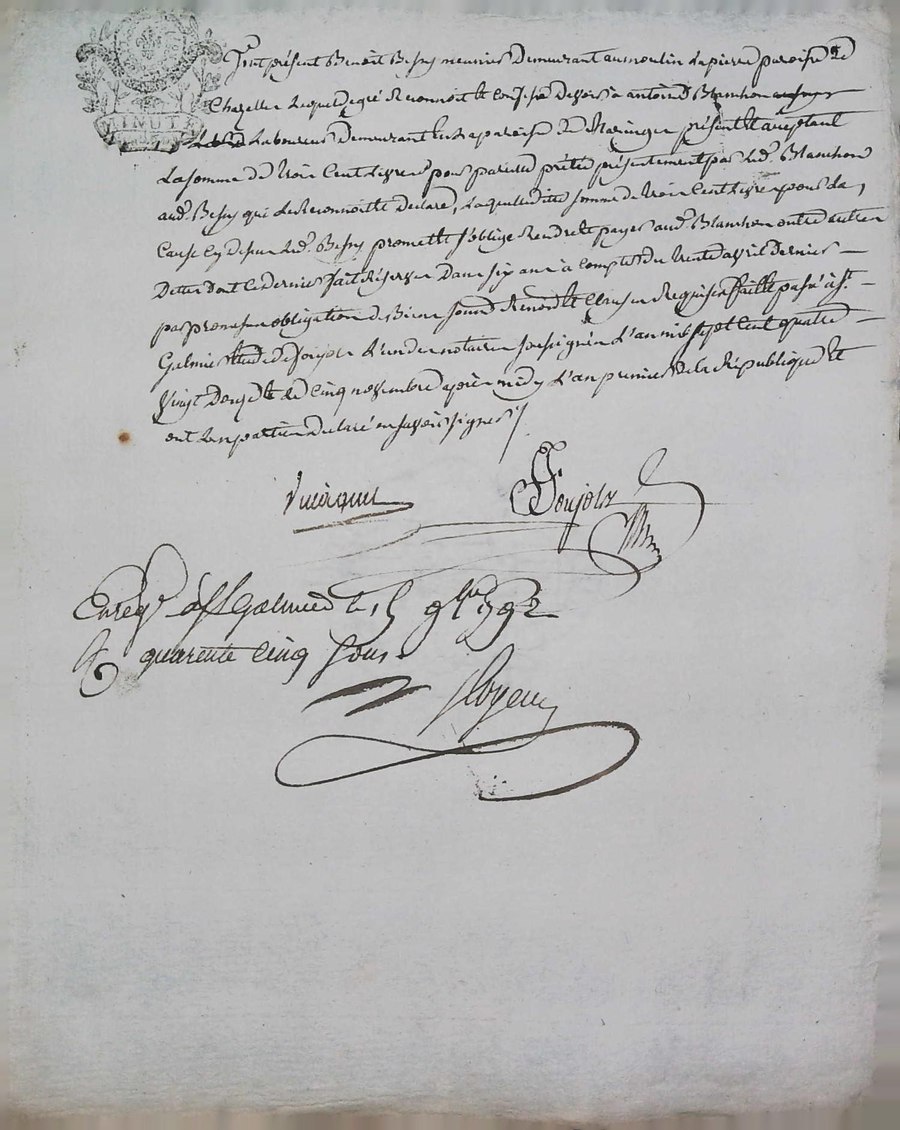 MINUTE
Fut présent Benoit Bessy meunier demeurant au moulin Lapierre paroisse de
Chazelles Lequel de gré Reconnoit et Confesse devoir à antoine Blanchon
Laboureur demeurant en La paroisse de Maringes présent et acceptant
La somme de trois Cent Livres pour pareille prêtée présentement par Led. Blanchon
aud. Bessy qui Le Reconnoit et déclare, Laquelle ditte somme de trois Cent Livres pour La
Cause Cy dessus Led. Bessy promet et s'oblige Rendre et payer aud. Blanchon outre autres
Dettes dont Ce dernier fait Réserve dans six ans à Compter du trente avril dernier
par promesse obligation de Biens soumd. Renond. et Clauses Requises fait et passé à St.
Galmier étude de Joujols L'un des notaires soussignés L'an mil sept Cent quatre
Vingt Douze et Le Cinq novembre après midy L'an premier de La République et
ont Les parties déclaré ne savoir signer
Joujols
Enregé. à St Galmier le 15 9bre 1792
R quarente Cinq sous